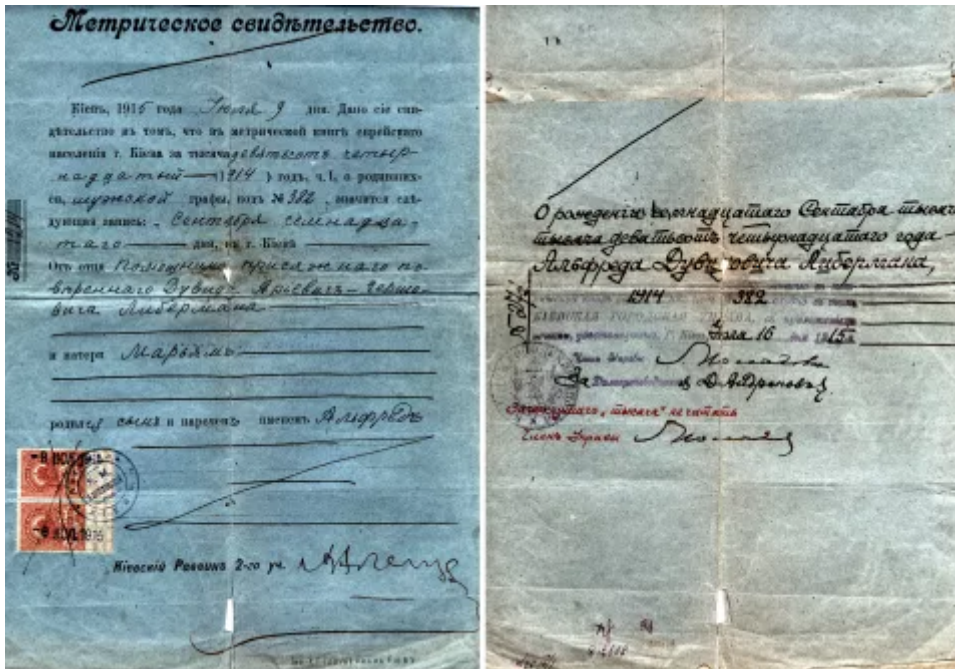 Метрическое свидѣтельство.
Кіевъ, 1915 года Іюля 9 дня. Дано сіе сви-
дѣтельство въ томъ, что въ метрической книгѣ еврейскаго
населенія г. Кіева за тысяча девятьсотъ четыр-
надцатый (1914) годъ, ч. I, о родивших-
ся, мужской графы, подъ № 382, значится слѣ-
дующая запись: „Сентября семнадца-
таго дня, въ г. Кіевѣ
Отъ отца Помощника присяжнаго по-
вѣреннаго Дувида Арiевича-Гершо-
вича Либермана
и матери Марьямъ
родился сынъ и нареченъ именемъ Альфредъ
Кіевскій Раввинъ 2-го уч.
О рожденіи семнадцатаго Сентября тысяч
тысяча девятьсотъ четырнадцатаго года
Альфреда Дувидовича Либермана,
1914 382
КІЕВСКАЯ ГОРОДСКАЯ УПРАВА,
Г. Кіевъ Іюля 16 дня 1915 г.
Членъ Управы
За Дѣлопроизводителя
Зачеркнутаго „тысяча" не читать
Членъ Управы